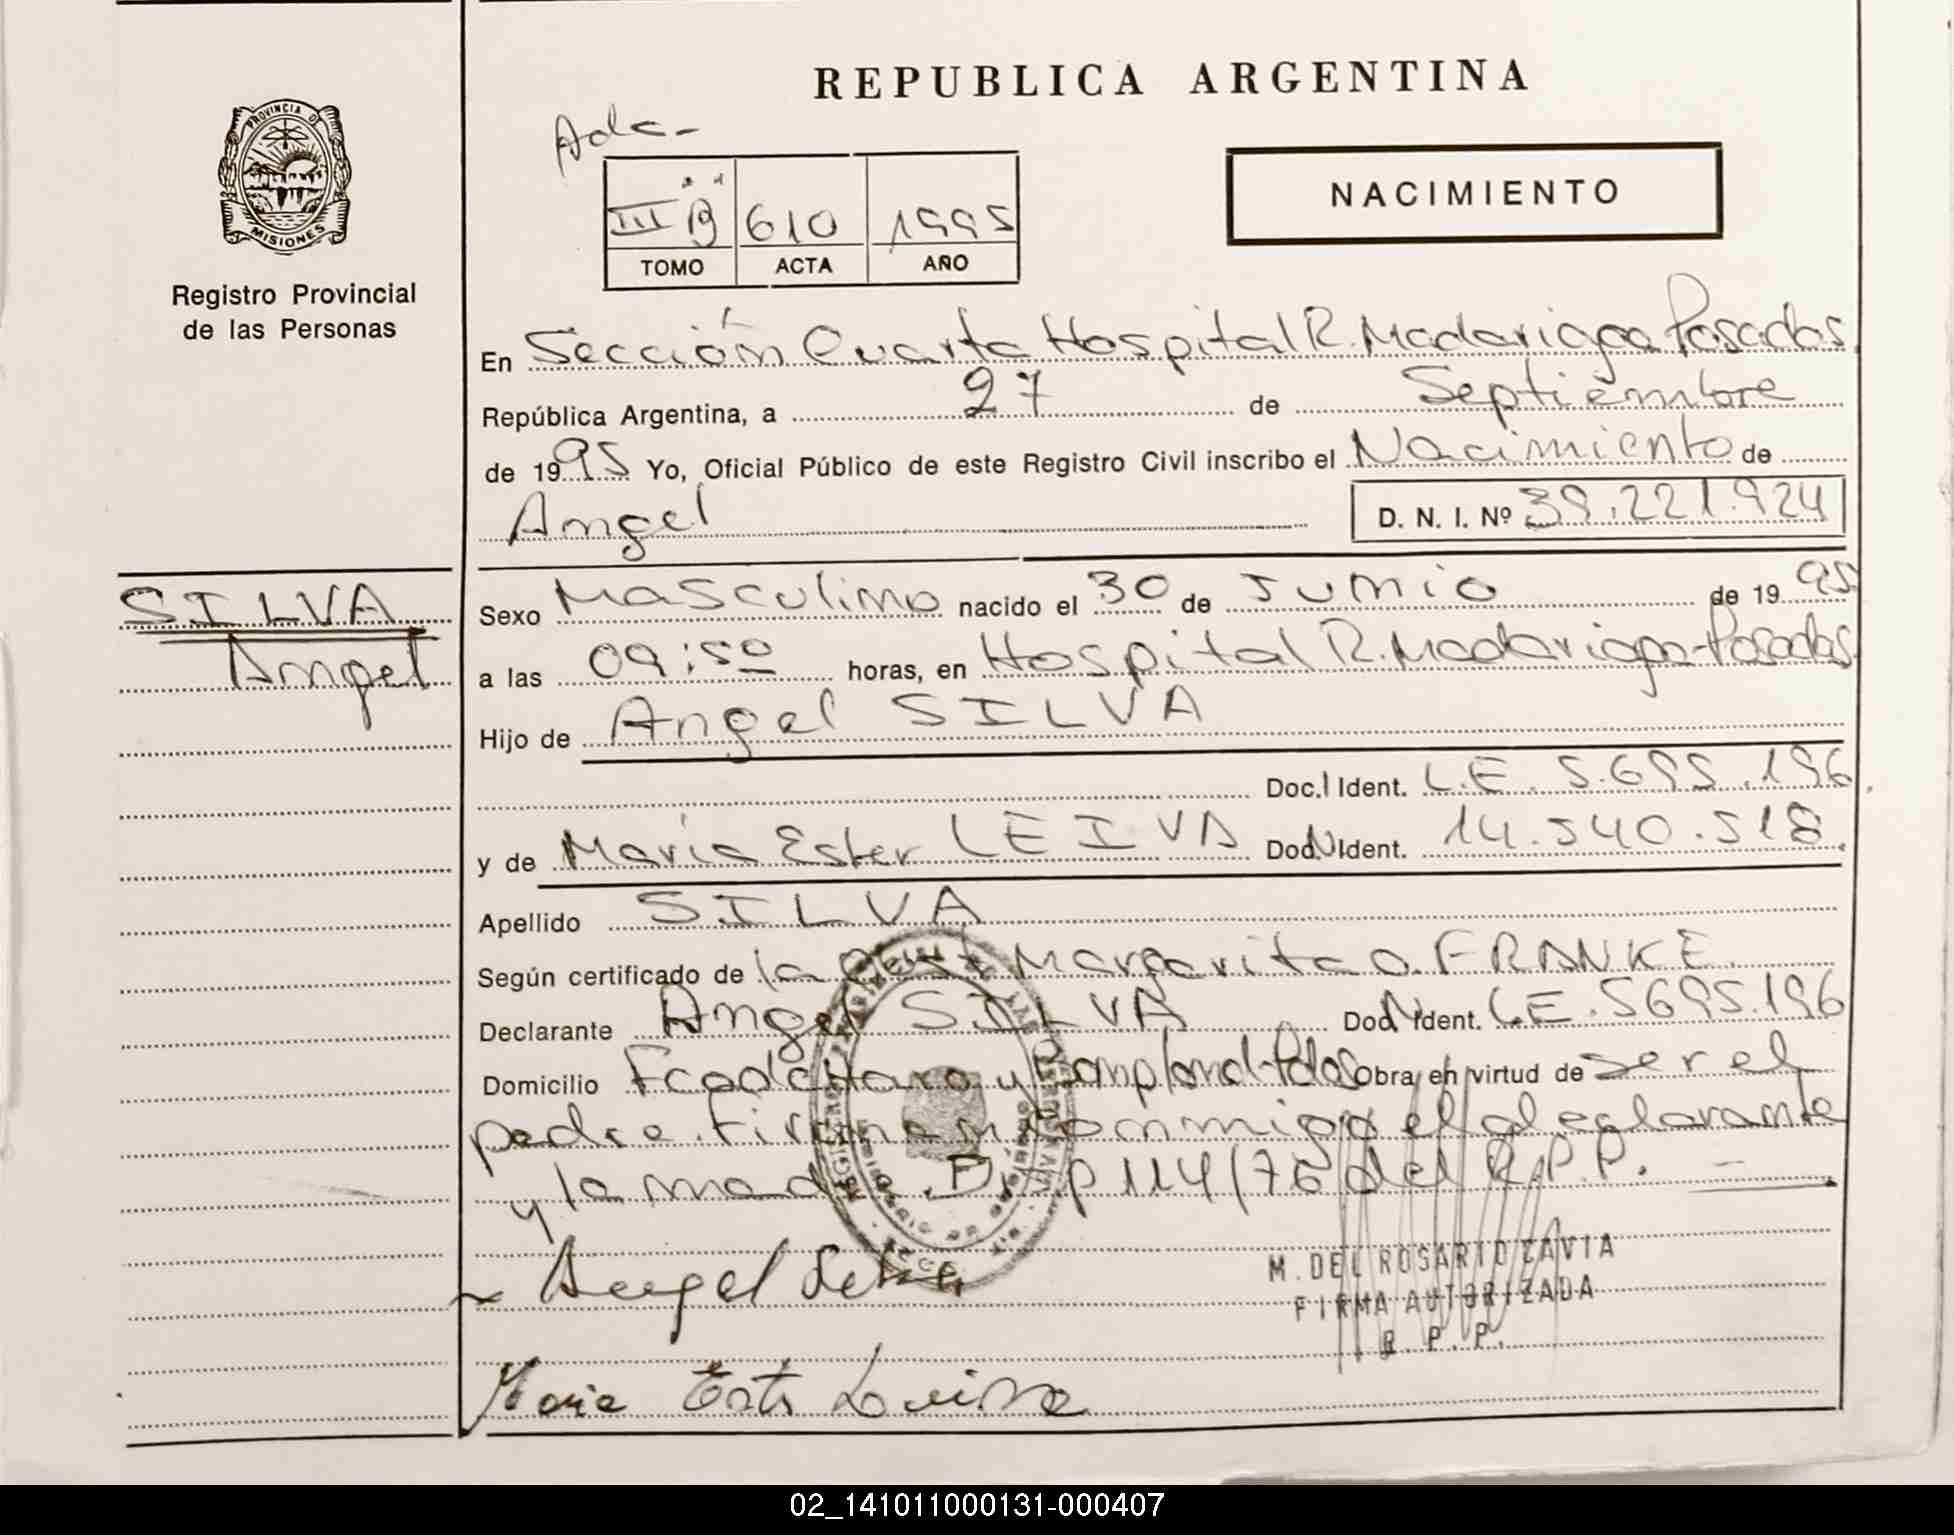 REPUBLICA ARGENTINA
PROVINCIA DE
MISIONES
Registro Provincial
de las Personas
Adc-
III "B" 610 1995
TOMO ACTA AÑO
NACIMIENTO
En Sección Cuarta Hospital R. Madariaga Posadas
República Argentina, a 27 de Septiembre
de 1995 Yo, Oficial Público de este Registro Civil inscribo el Nacimiento de
Angel D. N. I. Nº 39.221.924
SILVA
Angel
Sexo Masculino nacido el 30 de Junio de 1995
a las 09:50 horas, en Hospital R. Madariaga-Posadas.
Hijo de Angel SILVA
Doc. Ident. L.E. 5.695.196
y de María Ester LEIVA Doc. Ident. 14.540.518.
Apellido SILVA
Según certificado de la Margarita O. FRANKE.
Declarante Angel SILVA Doc. Ident. L.E. 5695.196
Domicilio Fco de Haro y Bompland-Pdas Obra en virtud de ser el
padre. Firman conmigo el declarante
y la madre. Disp 114/76 del R.P.P.
Angel Silva
M. DEL ROSARIO ZAVIA
FIRMA AUTORIZADA
R. P. P.
Maria Ester Leiva
02_141011000131-000407